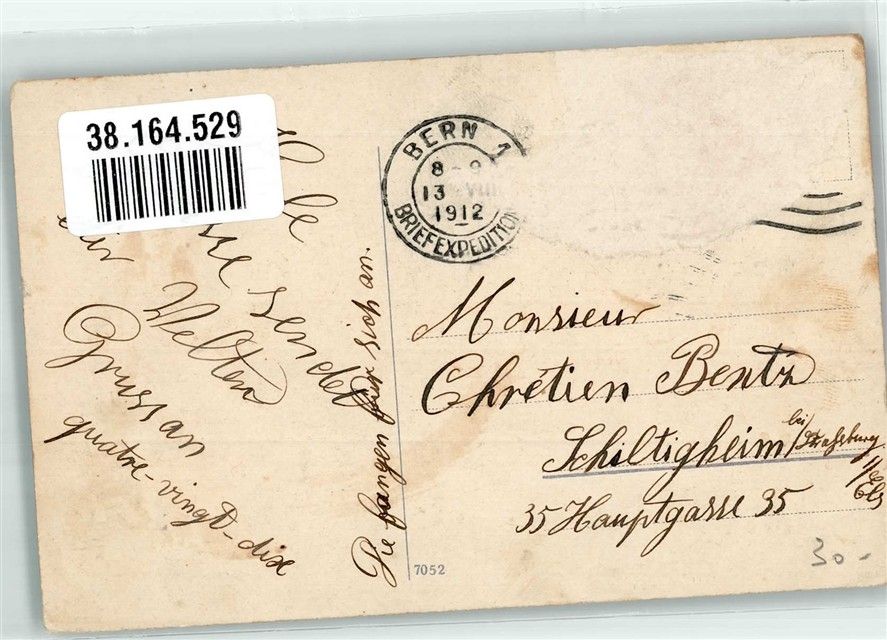 38.164.529
sendet
Welten
Gruss an
quatre-vingt-dix
Die fangen für sich an.
BERN 1
8-9
13 VIII
1912
BRIEFEXPEDITION
Monsieur
Chrétien Bentz
Schiltigheim bei Strassburg
i/Els
35 Hauptgasse 35
7052
30.-